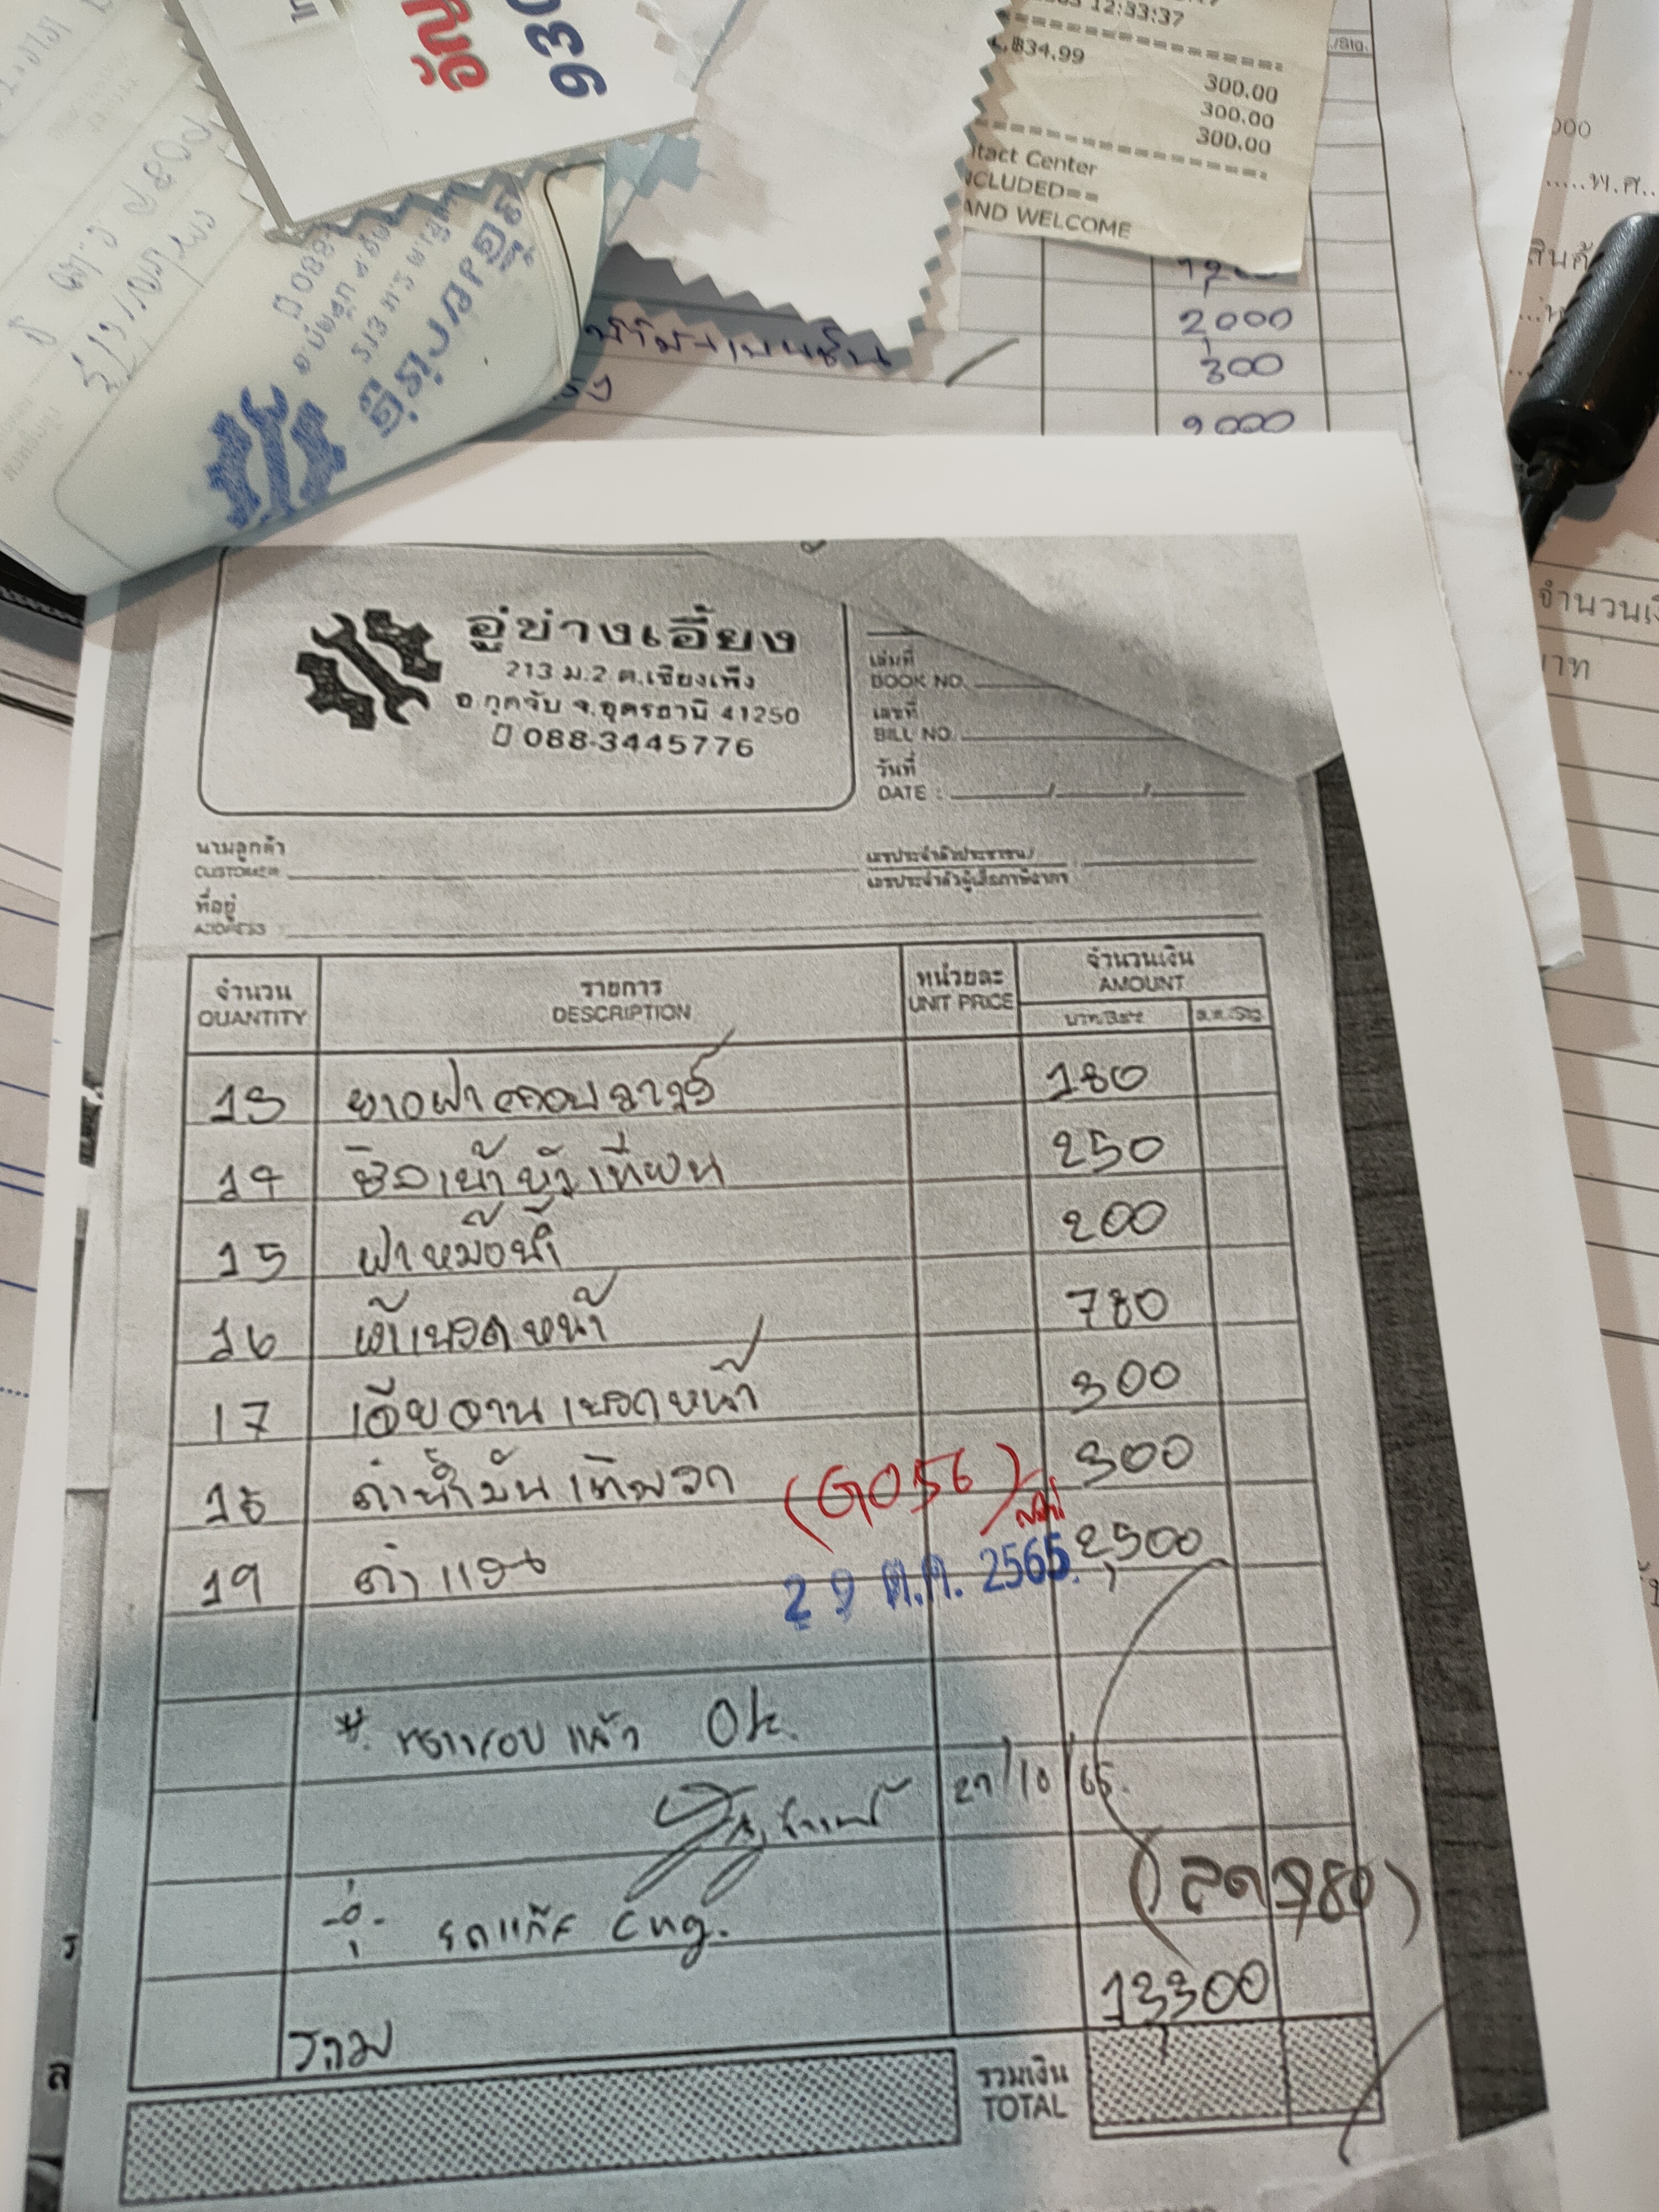 12:33:37
834.99
300.00
300.00
300.00
tact Center
NCLUDED==
AND WELCOME
2,000
300
9000
พ.ศ.
อู่ช่างเอี้ยง
213 ม.2 ต.เชียงเพ็ง
อ.กุดจับ จ.อุดรธานี 41250
088-3445776
เล่มที่
BOOK NO.
เลขที่
BILL NO.
วันที่
DATE : / /
นามลูกค้า
CUSTOMER
เลขประจำตัวประชาชน/
เลขประจำตัวผู้เสียภาษีอากร
ที่อยู่
ADDRESS
จำนวน รายการ หน่วยละ จำนวนเงิน
QUANTITY DESCRIPTION UNIT PRICE AMOUNT
บาท/Baht ส.ต./Stg.
13 ยางฝาครอบวาวล์ 180
14 ซิลเบ้าหัวเทียน 250
15 ฝาหม้อน้ำ 200
16 ผ้าเบรคหน้า 780
17 เจียจานเบรคหน้า 300
18 ค่าน้ำมันเติมรถ (G056) 300
19 ค่าแรง 2,500
29 ต.ค. 2565
*. ตรวจสอบแล้ว Ok.
27/10/65.
(ลด 780)
รถแก๊ส cng.
13,300
รวม
รวมเงิน
TOTAL